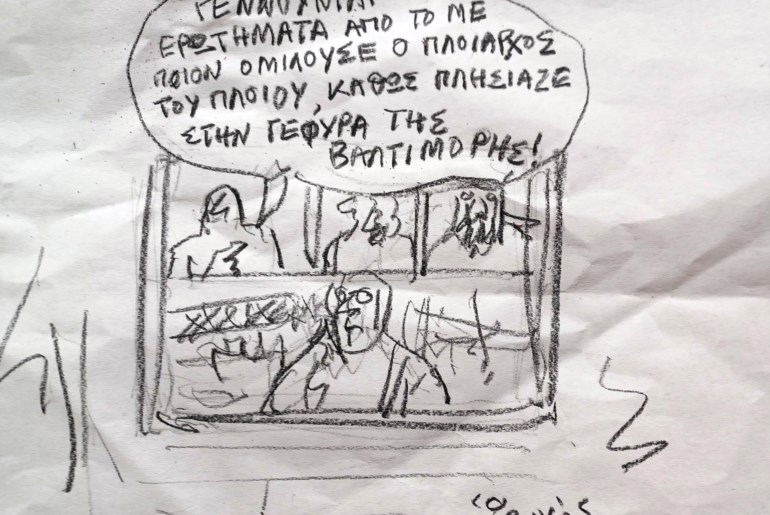 ΓΕΝΝΙΟΥΝΤΑΙ
ΕΡΩΤΗΜΑΤΑ ΑΠΟ ΤΟ ΜΕ
ΠΟΙΟΝ ΟΜΙΛΟΥΣΕ Ο ΠΛΟΙΑΡΧΟΣ
ΤΟΥ ΠΛΟΙΟΥ, ΚΑΘΩΣ ΠΛΗΣΙΑΖΕ
ΣΤΗΝ ΓΕΦΥΡΑ ΤΗΣ
ΒΑΛΤΙΜΟΡΗΣ!